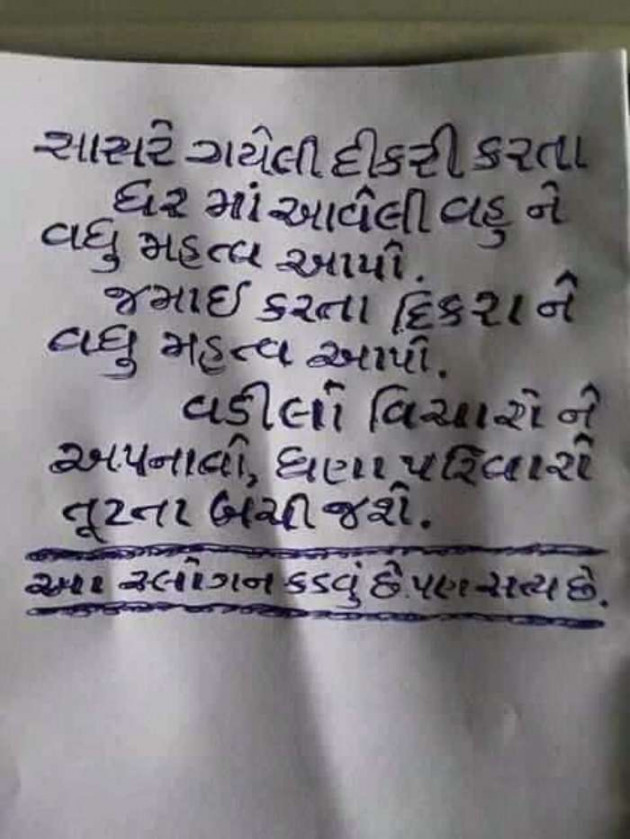 સાસરે ગયેલી દીકરી કરતા
ઘર માં આવેલી વહુ ને
વધુ મહત્વ આપો.
જમાઈ કરતા દિકરા ને
વધુ મહત્વ આપો.
વડીલો વિચારો ને
અપનાવો, ઘણા પરિવારો
તૂટતા બચી જશે.
આ સ્લોગન કડવું છે. પણ સત્ય છે.